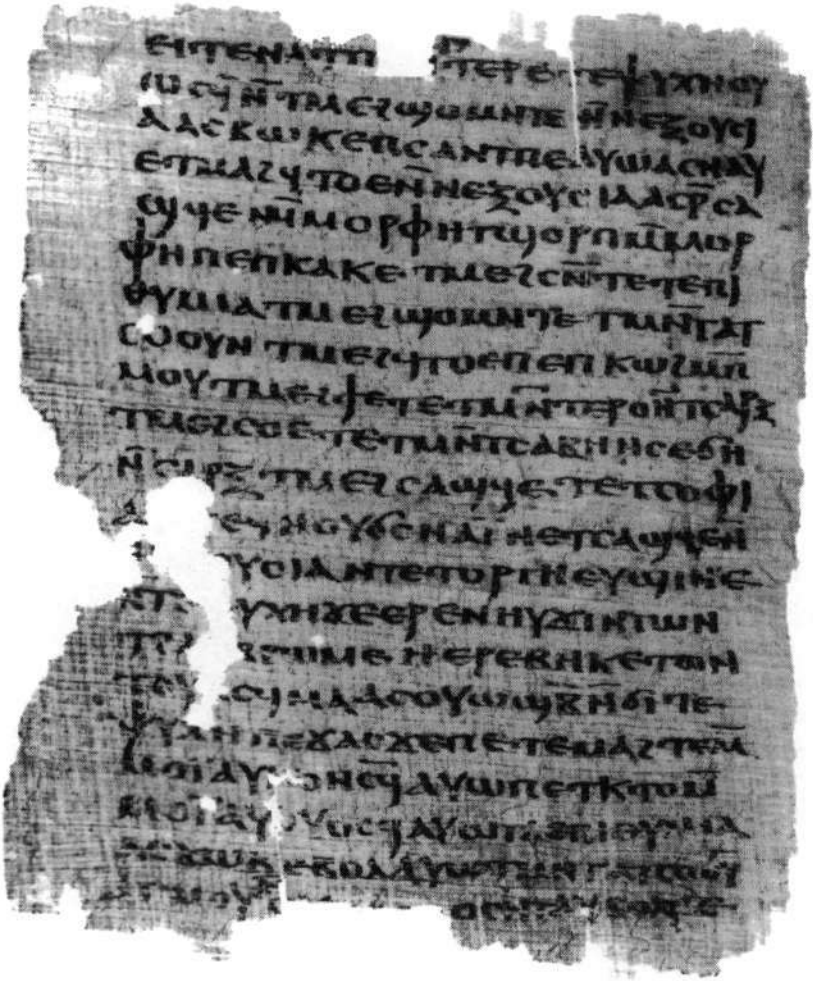 ⲉⲓⲧⲉⲛⲁⲧⲡ ⲛ̄ⲧⲉⲣⲉⲧⲉⲯⲩⲭⲏⲟⲩ
ⲱⲥϥ̄ⲛ̄ⲧⲙⲉϩϣⲟⲙⲛⲧⲉⲛ̄ⲛⲉⲝⲟⲩⲥⲓ
ⲁⲁⲥⲃⲱⲕⲉⲡⲥⲁⲛⲧⲡⲉⲁⲩⲱⲁⲥⲛⲁⲩ
ⲉⲧⲙⲁϩϥⲧⲟⲉⲛ̄ⲛⲉⲝⲟⲩⲥⲓⲁⲁⲥⲣ̄ⲥⲁ
ϣϥⲉⲙ̄ⲙⲟⲣⲫⲏⲧϣⲟⲣⲡⲙ̄ⲙⲟⲣ
ⲫⲏⲡⲉⲡⲕⲁⲕⲉⲧⲙⲉϩⲥⲛ̄ⲧⲉⲧⲉⲡⲓ
ⲑⲩⲙⲓⲁⲧⲙⲉϩϣⲟⲙⲛⲧⲉⲧⲙⲛ̄ⲧⲁⲧ
ⲥⲟⲟⲩⲛⲧⲙⲉϩϥⲧⲟⲉⲡⲉⲡⲕⲱϩⲙ̄ⲡ
ⲙⲟⲩⲧⲙⲉϩϯⲉⲧⲉⲧⲙⲛ̄ⲧⲉⲣⲟⲛ̄ⲧⲥⲁⲣⲝ
ⲧⲙⲉϩⲥⲟⲉⲧⲉⲧⲙⲛ̄ⲧⲥⲁⲃⲏⲛⲥⲉϭⲏ
ⲛ̄ⲥⲁⲣⲝⲧⲙⲉϩⲥⲁϣϥⲉⲧⲉⲧⲥⲟⲫⲓ
ⲁ ⲉϥⲛⲟⲩϭⲥⲛⲁⲓ̈ⲛⲉⲧⲥⲁϣϥⲉⲛ̄
ⲩⲥⲓⲁⲛⲧⲉⲧⲟⲣⲅⲏⲉⲩϣⲓⲛⲉ
ⲛⲧ ⲩⲭⲏϫⲉⲉⲣⲉⲛⲏⲩϫⲓⲛⲧⲱⲛ
ⲧϩ ⲃⲣⲱⲙⲉⲏⲉⲣⲉⲃⲏⲕⲉⲧⲱⲛ
ⲧⲟⲩ ⲥϥⲙⲁⲁⲥⲟⲩⲱϣⲃ̄ⲛ̄ϭⲓⲧⲉ
ⲯⲩⲭⲏⲡⲉϫⲁⲥϫⲉⲡⲉⲧⲉⲙⲁϩⲧⲉⲙ̄
ⲙⲟⲓ̈ⲁⲩ ⲟⲛⲥϥ̄ⲁⲩⲱⲡⲉⲧⲕⲧⲟⲙ̄
ⲙⲟⲓ̈ⲁⲩⲟⲩⲟⲥϥⲁⲩⲱⲧⲁⲉⲡⲓⲑⲩⲙⲓⲁ
ⲁⲥϫⲱⲕⲉⲃⲟⲗⲁⲩⲱⲧⲙⲛⲧⲁⲧⲥⲟⲟⲩ
ⲁⲥⲙⲟⲩ